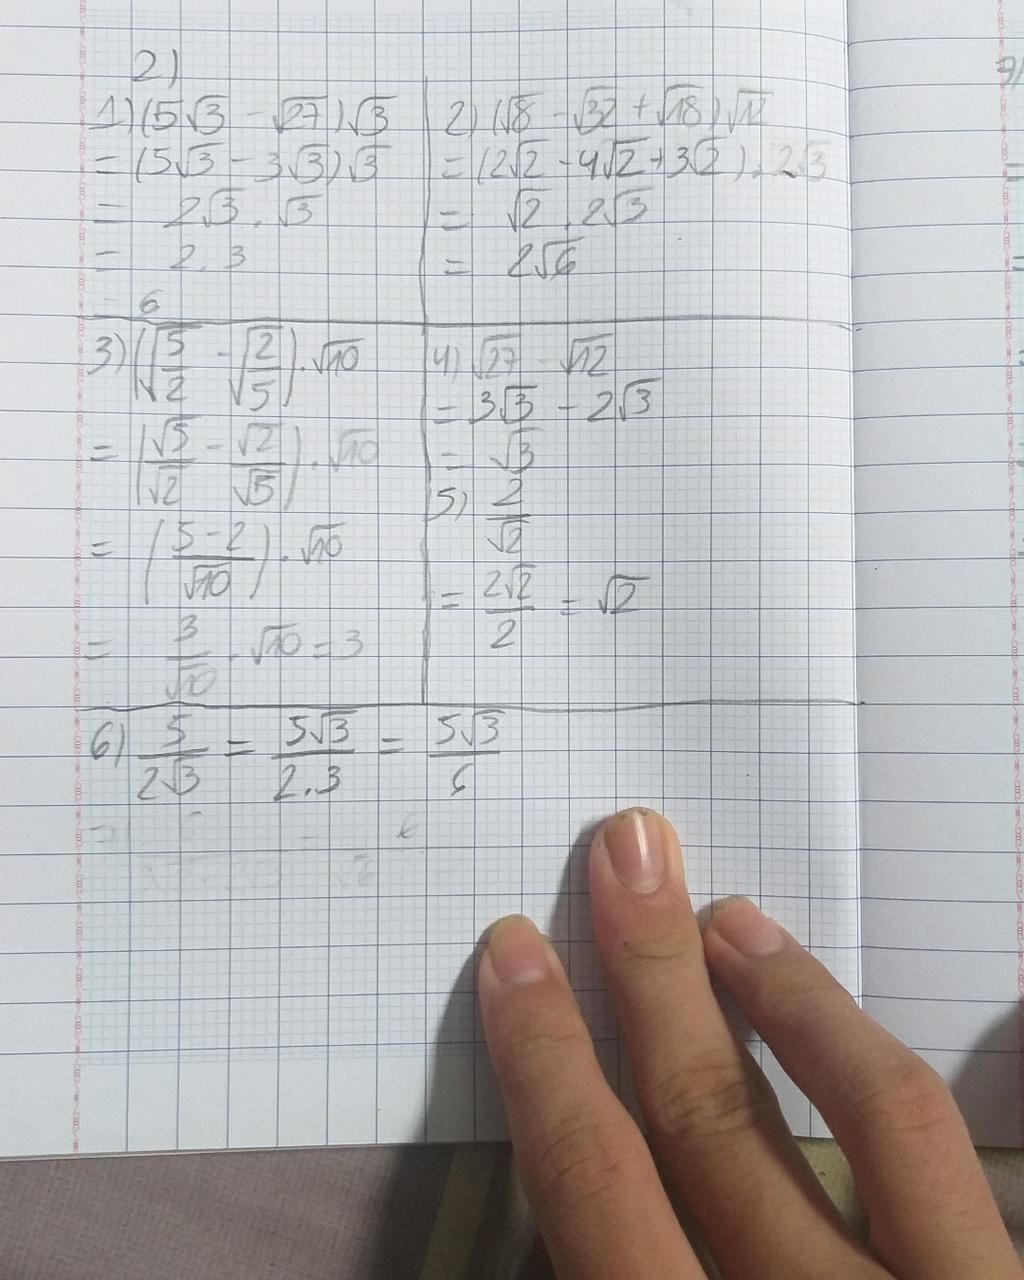 2)
1) (5√3 - √27)√3
= (5√3 - 3√3)√3
= 2√3 . √3
= 2.3
= 6
2) (√8 - √32 + √18)√12
= (2√2 - 4√2 + 3√2) . 2√3
= √2 . 2√3
= 2√6
3) (√(5/2) - √(2/5)) . √10
= (√5/√2 - √2/√5) . √10
= ((5-2)/√10) . √10
= 3/√10 . √10 = 3
4) √27 - √12
= 3√3 - 2√3
= √3
5) 2/√2
= 2√2/2 = √2
6) 5/(2√3) = 5√3/(2.3) = 5√3/6